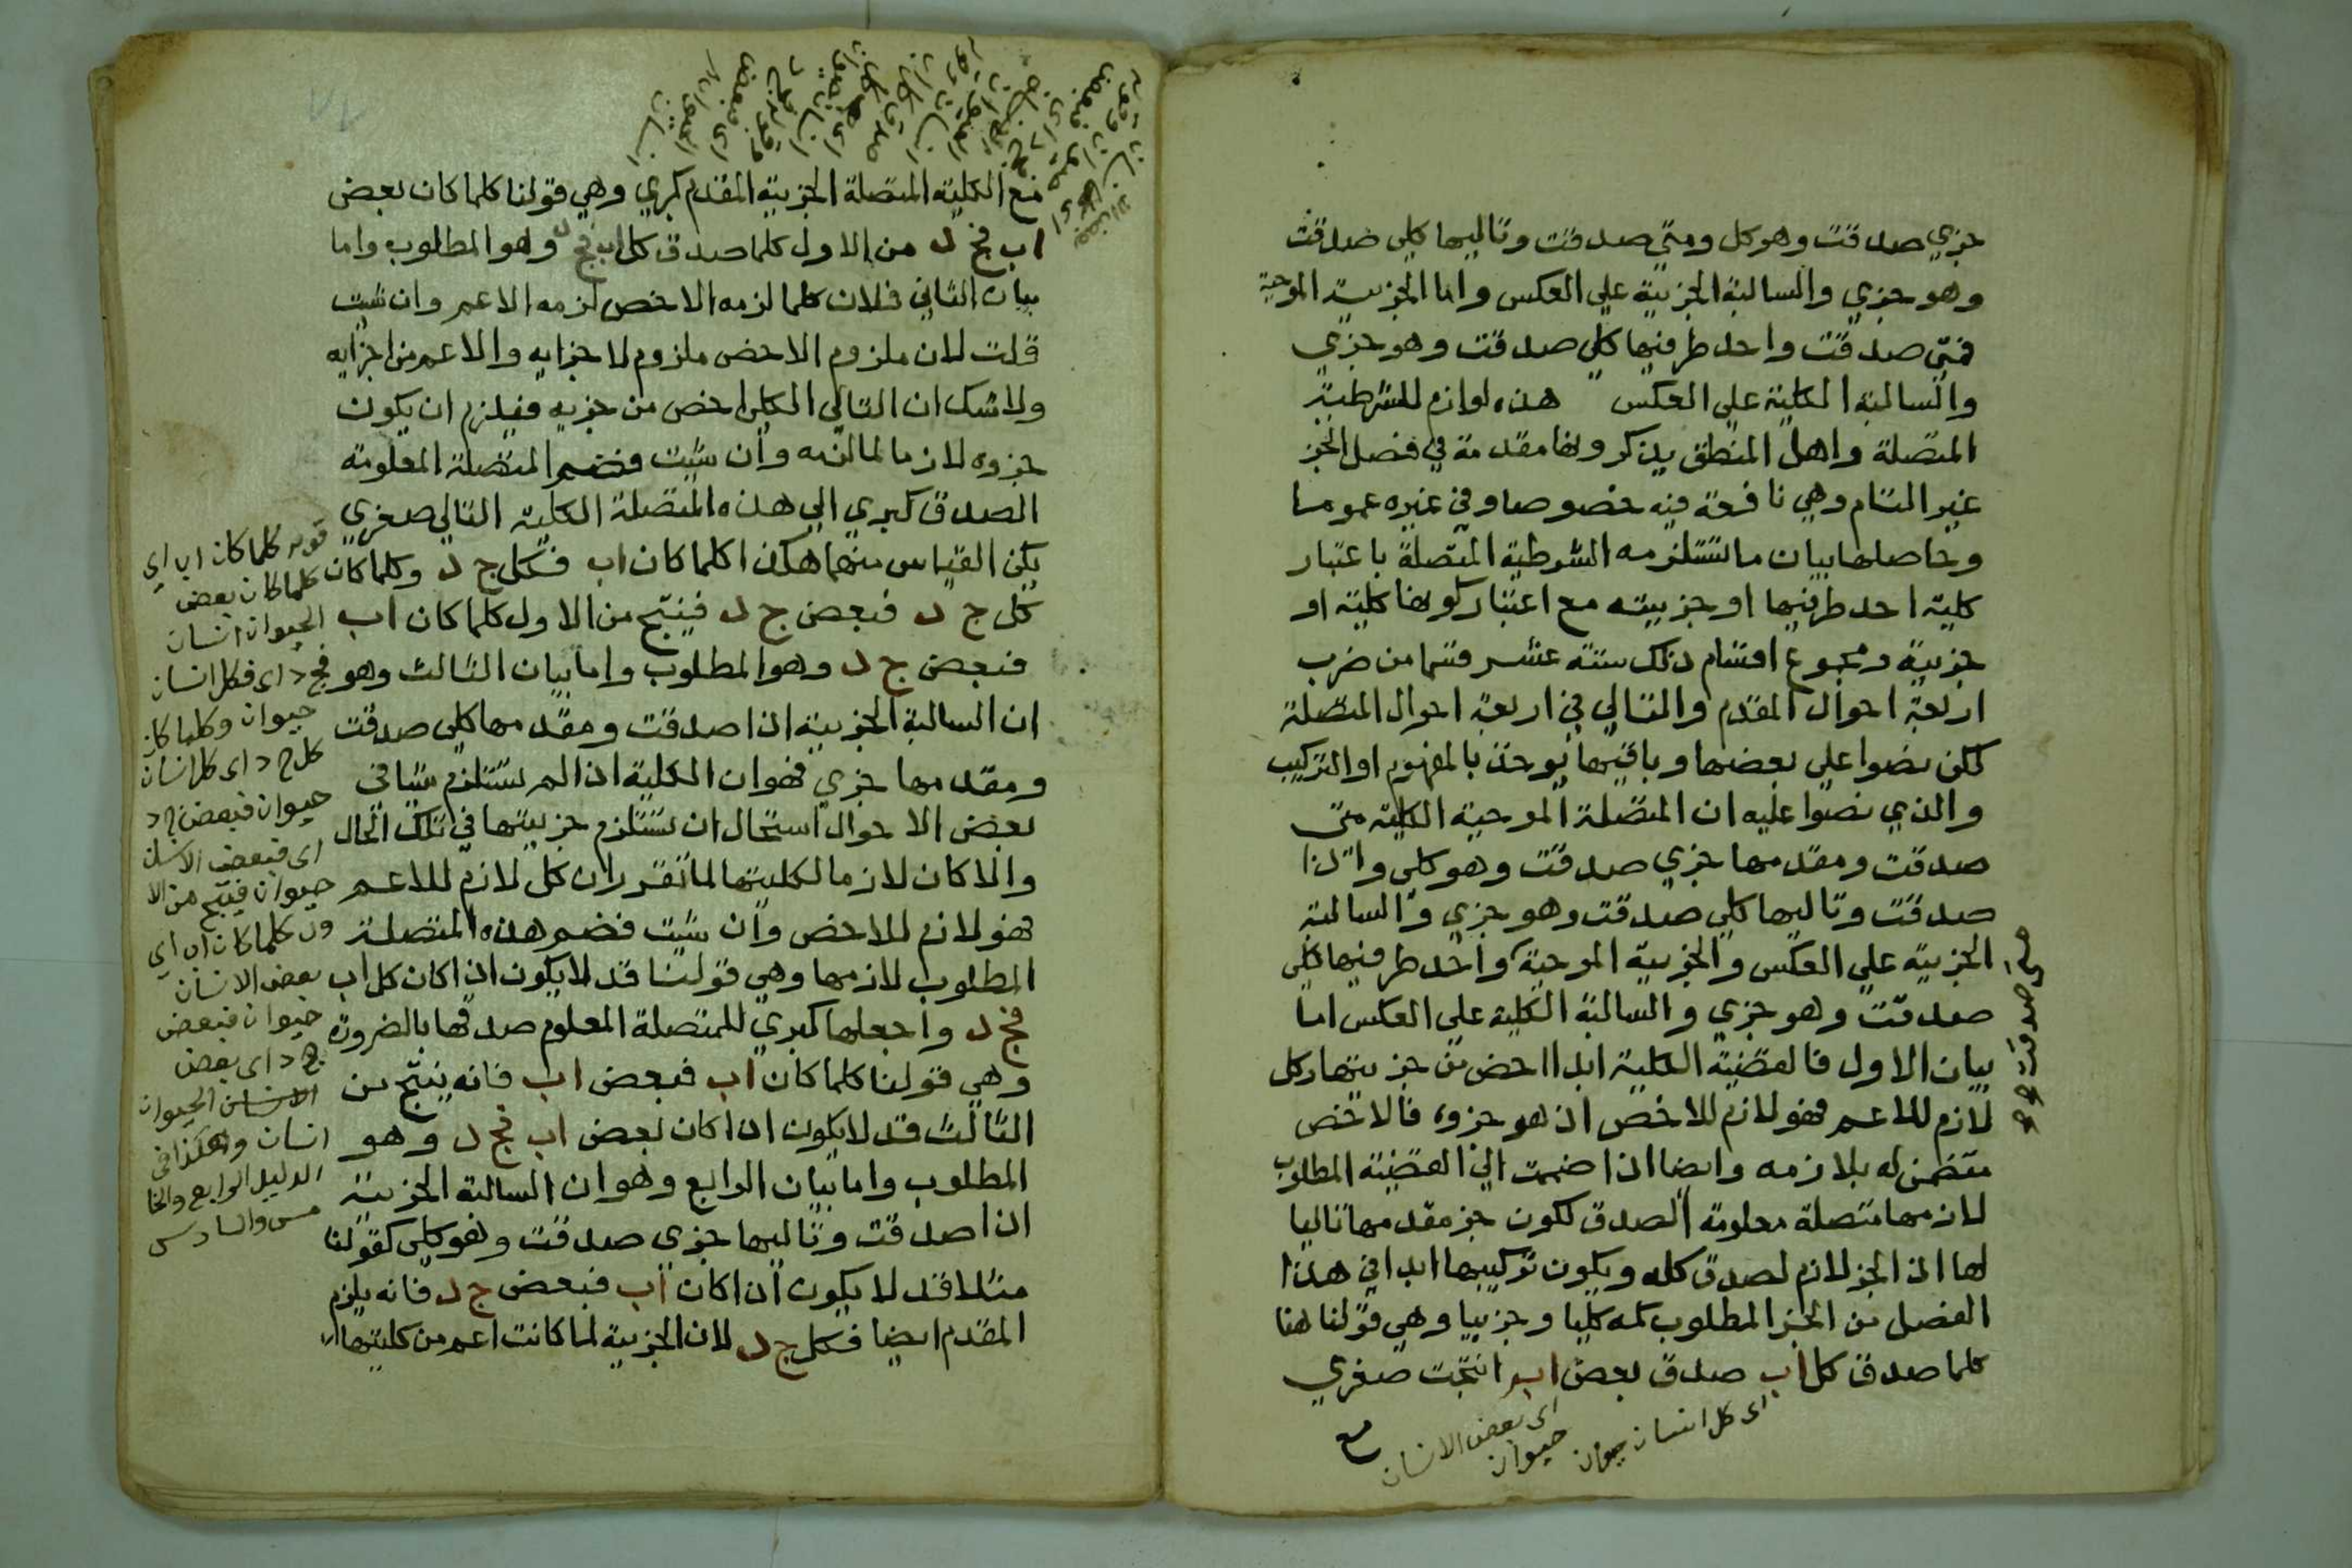 جزي صدقت وهو كل ومتي صدقت وتاليها كلي صدقت
وهو جزي والسالبة الجزيية علي العكس واما الجزيية الموجبة
فمتي صدقت واحد طرفيها كلي صدقت وهو جزي
والسالبة الكلية علي العكس هذه لوازم للشرطية
المتصلة واهل المنطق يذكرونها مقدمة في فصل الجز
غير التام وهي نافعة فيه خصوصا وفي غيره عموما
وحاصلها بيان ما تستلزمه الشرطية المتصلة باعتبار
كلية احد طرفيها او جزييته مع اعتبار كونها كلية او
جزيية ومجموع اقسام ذلك ستة عشر قسما من ضرب
اربعة احوال المقدم والتالي في اربعة احوال المتصلة
لكن نصوا علي بعضها وباقيها يوخذ بالمفهوم او التركيب
والذي نصوا عليه ان المتصلة الموجبة الكلية متي
صدقت ومقدمها جزي صدقت وهو كلي واذا
صدقت وتاليها كلي صدقت وهو جزي والسالبة
الجزيية علي العكس والجزيية الموجبة واحد طرفيها كلي
صدقت وهو جزي والسالبة الكلية علي العكس اما
بيان الاول فالقضية الكلية ابدا اخص من جزييتها وكل
لازم للاعم فهو لازم للاخص اذ هو جزوه فالاخص
متضمن له بلازمه وايضا اذا ضمت الي القضية المطلوب
لازمها متصلة معلومة الصدق لكون جز مقدمها تاليا
لها اذ الجز لازم لصدق كله ويكون تركيبها ابدا في هذا
الفصل من الجز المطلوب له كليا وجزييا وهي قولنا هنا
كلما صدق كل اب صدق بعض اب انتجت صغري
اي كل انسان حيوان
اي بعض الانسان حيوان
مع
مع الكلية المتصلة الجزيية المقدم كبري وهي قولنا كلما كان بعض
اب فج د من الاول كلما صدق كل اب فج د وهو المطلوب واما
بيان الثاني فلان كلما لزمه الاخص لزمه الاعم وان شيت
قلت لان ملزوم الاخص ملزوم لاجزايه والاعم من اجزايه
ولا شك ان التالي الكلي اخص من جزيه فيلزم ان يكون
جزوه لازما لما لزمه وان شيت فضم المتصلة المعلومة
الصدق كبري الي هذه المتصلة الكلية التالي صغري
يكن القياس منهما هكذا كلما كان اب فكل ج د وكلما كان
كل ج د فبعض ج د فينتج من الاول كلما كان اب
فبعض ج د وهو المطلوب واما بيان الثالث وهو
ان السالبة الجزيية اذا صدقت ومقدمها كلي صدقت
ومقدمها جزي فهو ان الكلية اذا لم تستلزم شيا في
بعض الاحوال استحال ان تستلزم جزييتها في تلك الحال
والا كان لازما لكليتها لما تقرر ان كل لازم للاعم
فهو لازم للاخص وان شيت فضم هذه المتصلة
المطلوب لازمها وهي قولنا قد لا يكون اذا كان كل اب
فج د واجعلها كبري للمتصلة المعلوم صدقها بالضرورة
وهي قولنا كلما كان اب فبعض اب فانه ينتج من
الثالث قد لا يكون اذا كان بعض اب فج د وهو
المطلوب واما بيان الرابع وهو ان السالبة الجزيية
اذا صدقت وتاليها جزي صدقت وهو كلي كقولنا
مثلا قد لا يكون اذا كان اب فبعض ج د فانه يلزم
المقدم ايضا فكل ج د لان الجزيية لما كانت اعم من كليتها
قوله كلما كان اب اي
كلما كان بعض
الحيوان انسان
فج د اي فكل انسان
حيوان وكلما كان
كل ج د اي كل انسان
حيوان فبعض ج د
اي فبعض الانسان
حيوان فينتج من الا
ول كلما كان اب اي
بعض الانسان
حيوان فبعض
ج د اي بعض
الانسان الحيوان
انسان وهكذا في
الدليل الرابع والخا
مس والسادس